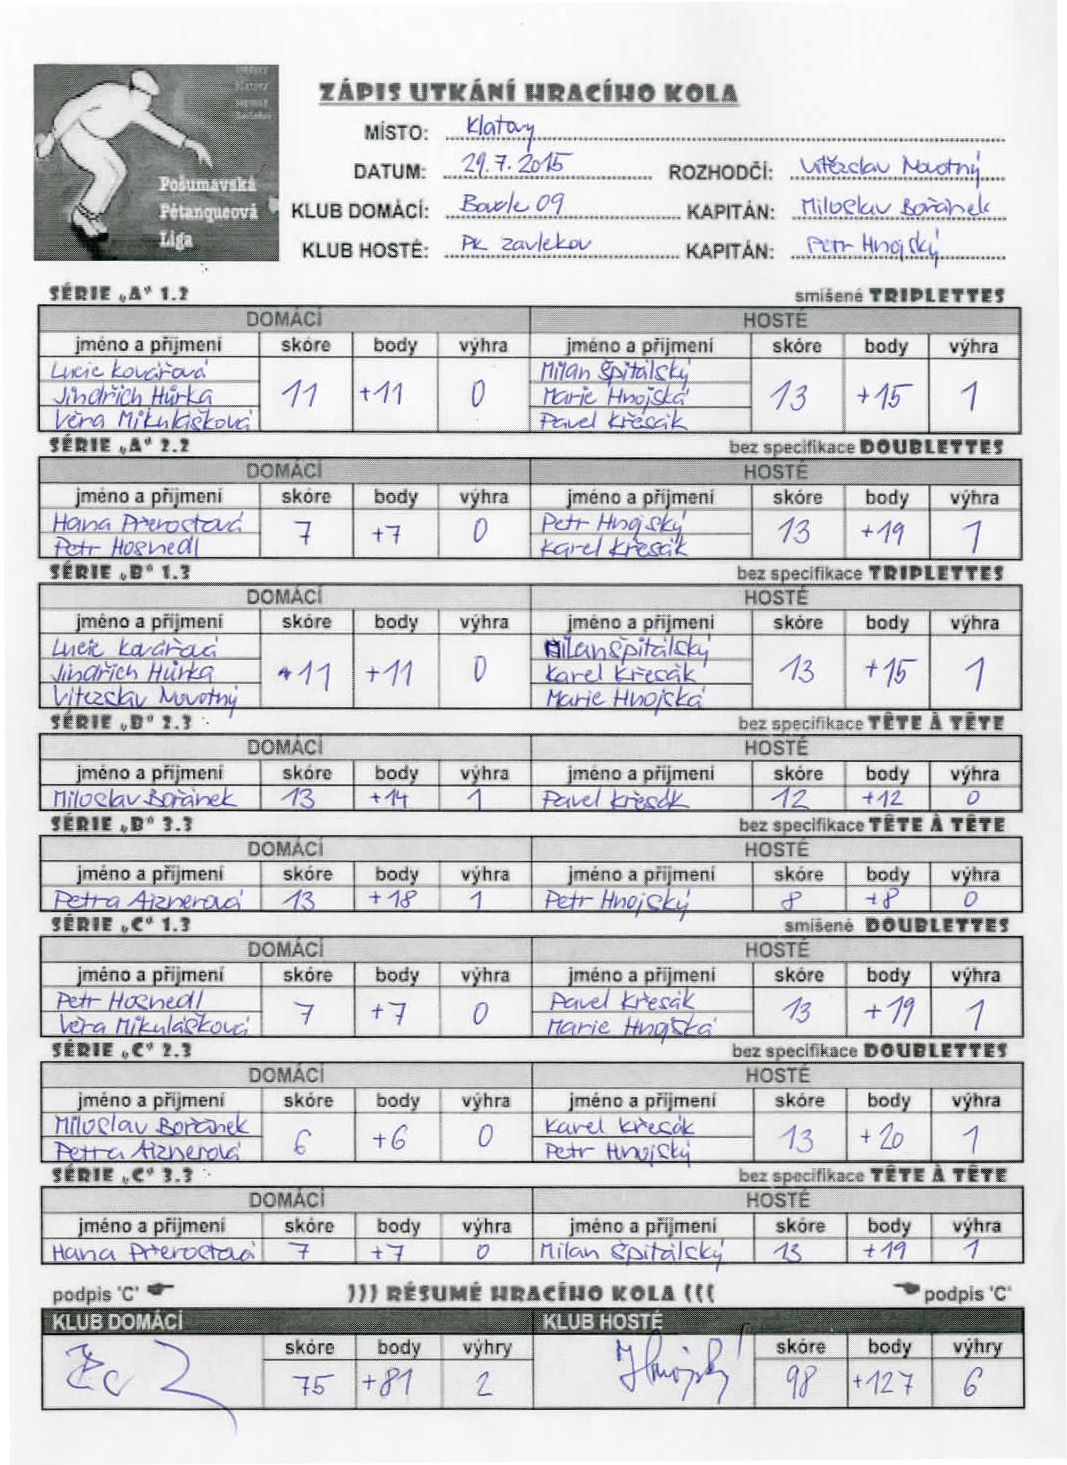 ZÁPIS UTKÁNÍ HRACÍHO KOLA
Pošumavská
Pétanqueová
Liga
MÍSTO: Klatovy
DATUM: 29.7.2015 ROZHODČÍ: Vítězslav Novotný
KLUB DOMÁCÍ: Boule 09 KAPITÁN: Miloslav Bořánek
KLUB HOSTÉ: PK Zavlekov KAPITÁN: Petr Hnojský
SÉRIE „A“ 1.2 smíšené TRIPLETTES
DOMÁCÍ HOSTÉ
jméno a příjmení skóre body výhra jméno a příjmení skóre body výhra
Lucie Kovářová Milan Špitálský
Jindřich Hůrka 11 +11 0 Marie Hnojská 13 +15 1
Věra Mikulášková Pavel Křesák
SÉRIE „A“ 2.2 bez specifikace DOUBLETTES
DOMÁCÍ HOSTÉ
jméno a příjmení skóre body výhra jméno a příjmení skóre body výhra
Hana Přerostová 7 +7 0 Petr Hnojský 13 +19 1
Petr Hosnedl Karel Křesák
SÉRIE „B“ 1.3 bez specifikace TRIPLETTES
DOMÁCÍ HOSTÉ
jméno a příjmení skóre body výhra jméno a příjmení skóre body výhra
Lucie Kovářová Milan Špitálský
Jindřich Hůrka 11 +11 0 Karel Křesák 13 +15 1
Vítězslav Novotný Marie Hnojská
SÉRIE „B“ 2.3 bez specifikace TÊTE À TÊTE
DOMÁCÍ HOSTÉ
jméno a příjmení skóre body výhra jméno a příjmení skóre body výhra
Miloslav Bořánek 13 +14 1 Pavel Křesák 12 +12 0
SÉRIE „B“ 3.3 bez specifikace TÊTE À TÊTE
DOMÁCÍ HOSTÉ
jméno a příjmení skóre body výhra jméno a příjmení skóre body výhra
Petra Aiznerová 13 +18 1 Petr Hnojský 8 +8 0
SÉRIE „C“ 1.3 smíšené DOUBLETTES
DOMÁCÍ HOSTÉ
jméno a příjmení skóre body výhra jméno a příjmení skóre body výhra
Petr Hosnedl 7 +7 0 Pavel Křesák 13 +19 1
Věra Mikulášková Marie Hnojská
SÉRIE „C“ 2.3 bez specifikace DOUBLETTES
DOMÁCÍ HOSTÉ
jméno a příjmení skóre body výhra jméno a příjmení skóre body výhra
Miloslav Bořánek 6 +6 0 Karel Křesák 13 +20 1
Petra Aiznerová Petr Hnojský
SÉRIE „C“ 3.3 bez specifikace TÊTE À TÊTE
DOMÁCÍ HOSTÉ
jméno a příjmení skóre body výhra jméno a příjmení skóre body výhra
Hana Přerostová 7 +7 0 Milan Špitálský 13 +19 1
podpis 'C' ))) RÉSUMÉ HRACÍHO KOLA ((( podpis 'C'
KLUB DOMÁCÍ KLUB HOSTÉ
skóre body výhry skóre body výhry
75 +81 2 Hnojský 98 +127 6